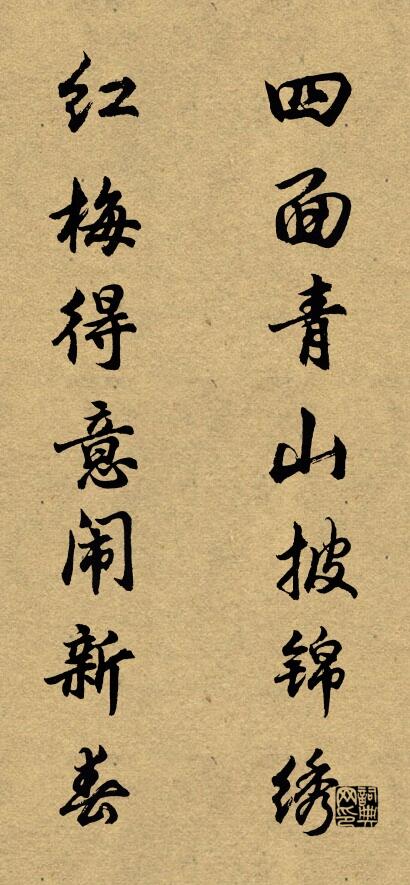 四面青山披锦绣
红梅得意闹新春
詞典网印